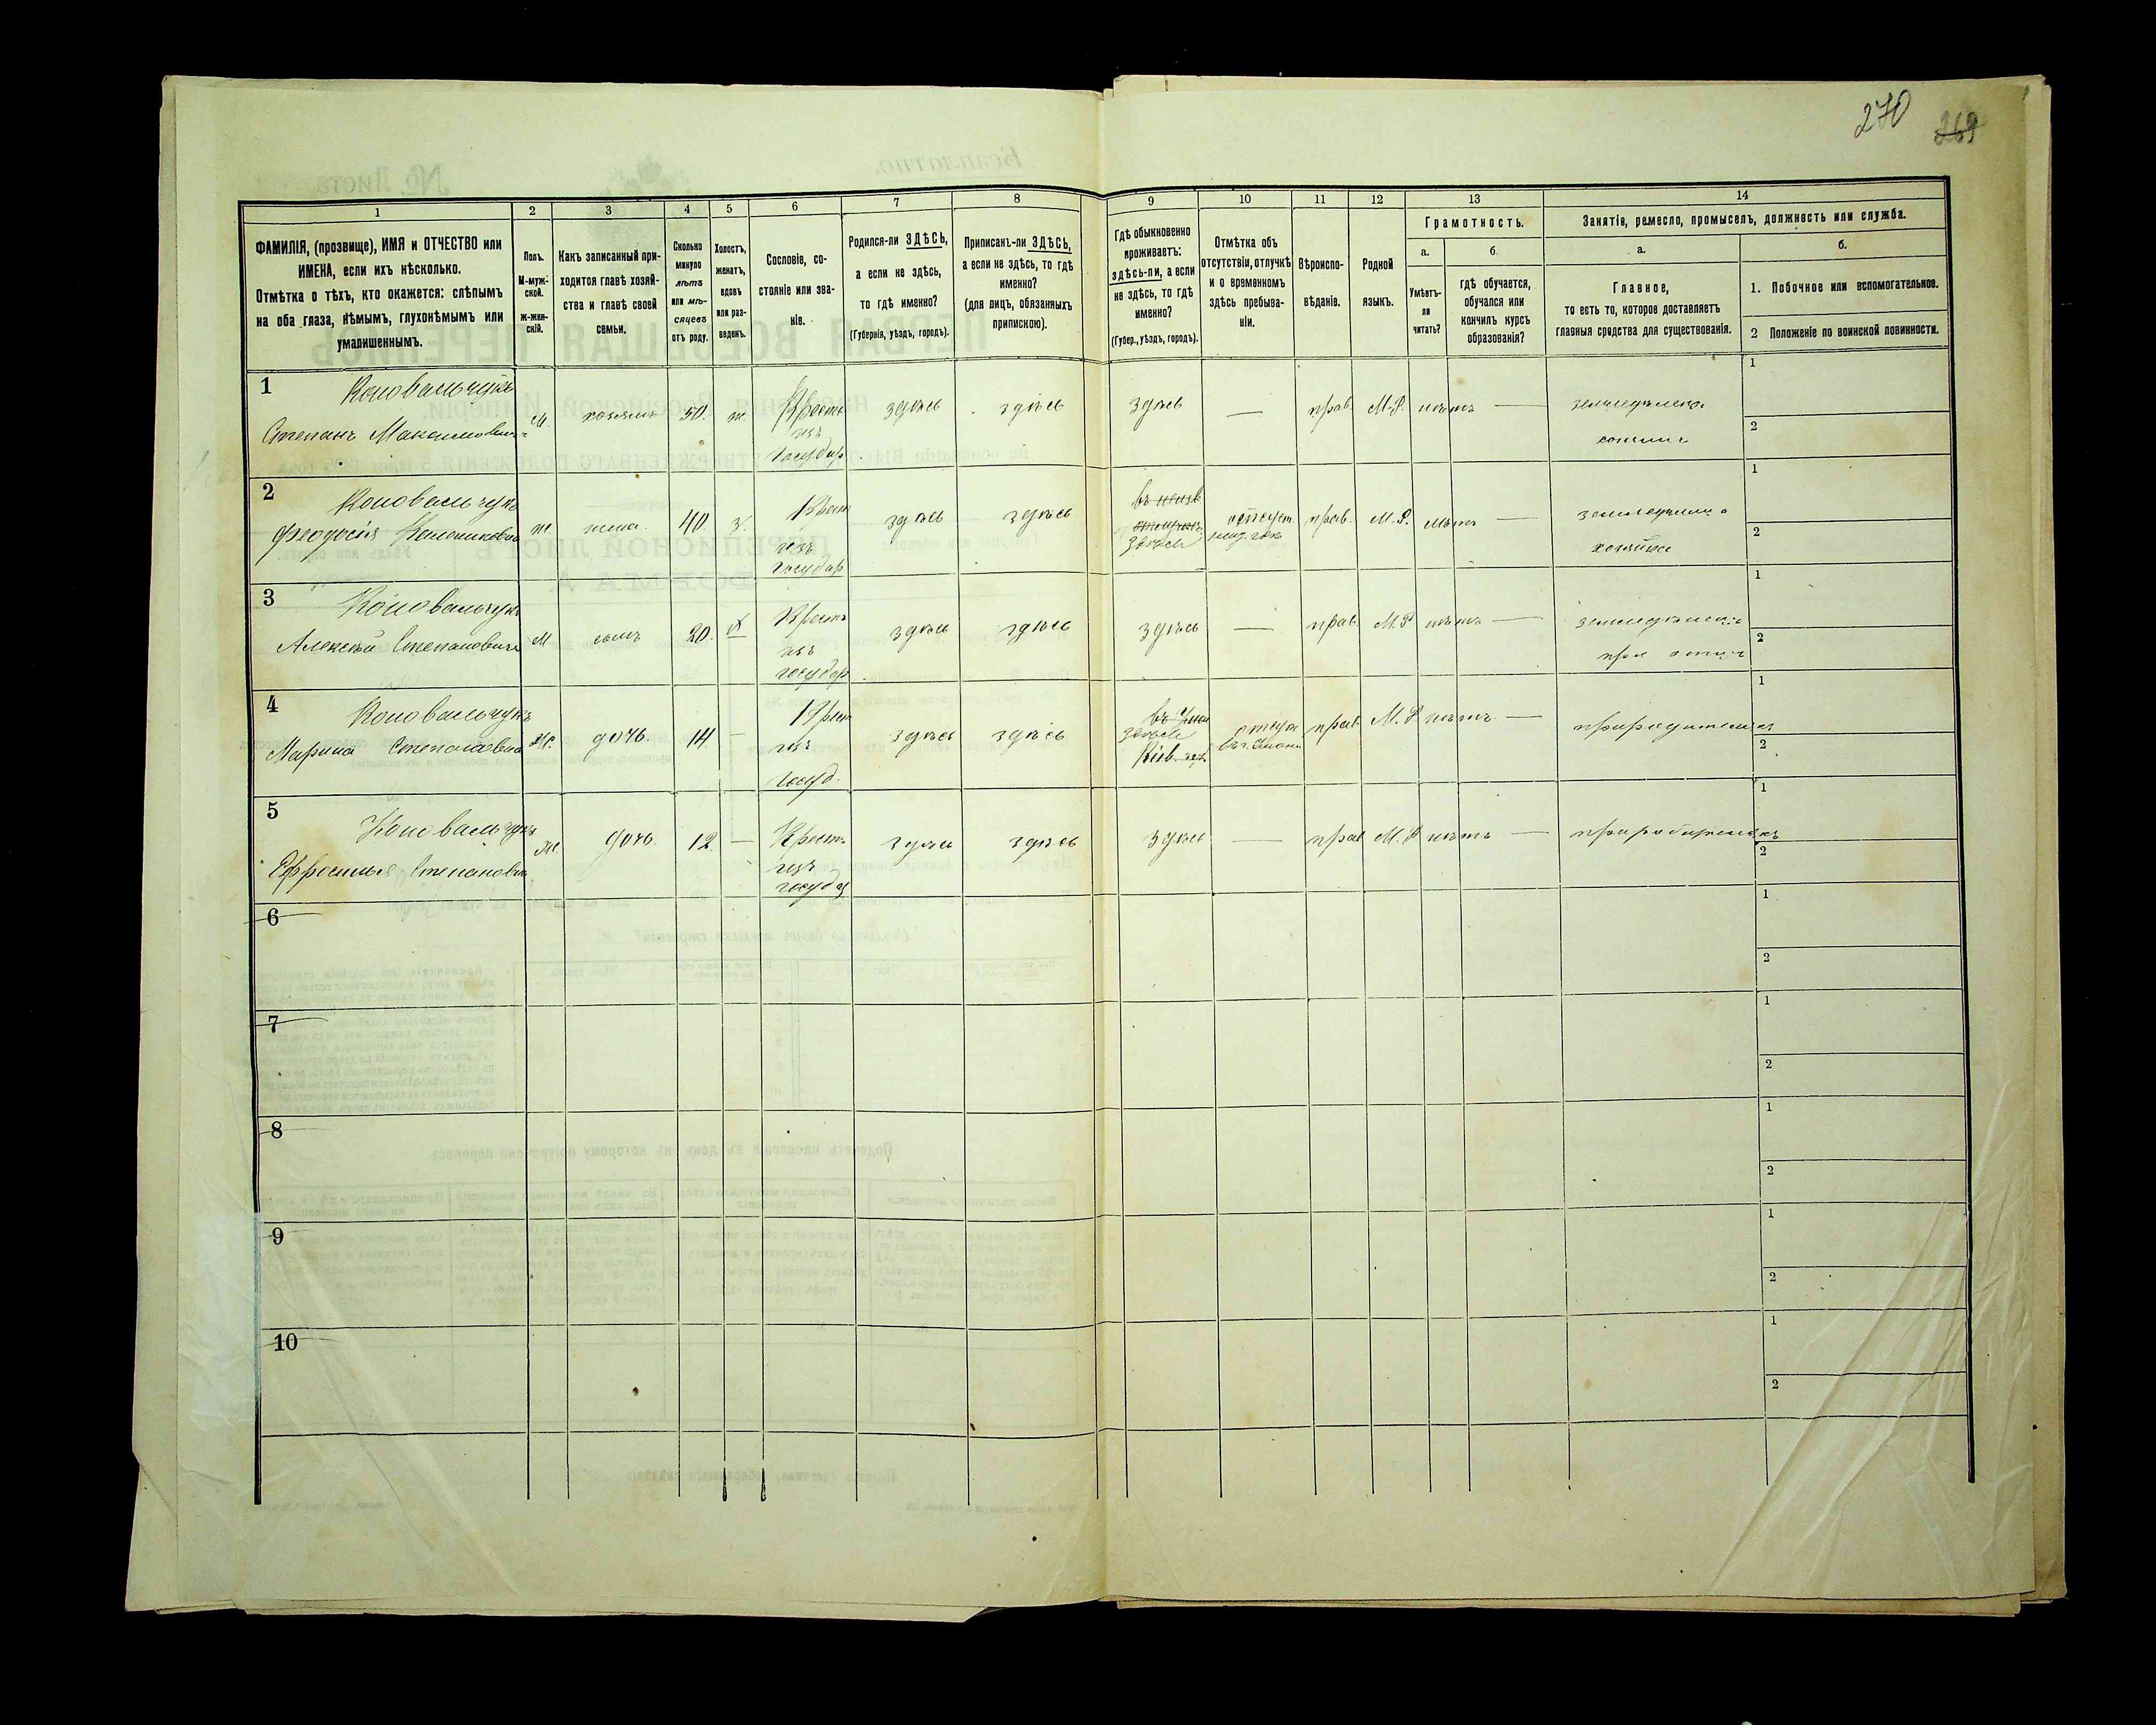 270 269
1 2 3 4 5 6 7 8 9 10 11 12 13 14
ФАМИЛІЯ, (прозвище), ИМЯ и ОТЧЕСТВО или
ИМЕНА, если ихъ нѣсколько.
Отмѣтка о тѣхъ, кто окажется: слѣпымъ
на оба глаза, нѣмымъ, глухонѣмымъ или
умалишеннымъ.
Полъ.
М-муж-
ской.
ж-жен-
скій.
Какъ записанный при-
ходится главѣ хозяй-
ства и главѣ своей
семьи.
Сколько
минуло
лѣтъ
или мѣ-
сяцевъ
отъ роду.
Холостъ,
женатъ,
вдовъ
или раз-
веденъ.
Сословіе, со-
стояніе или зва-
ніе.
Родился-ли ЗДѢСЬ,
а если не здѣсь,
то гдѣ именно?
(Губернія, уѣздъ, городъ).
Приписанъ-ли ЗДѢСЬ,
а если не здѣсь, то гдѣ
именно?
(для лицъ, обязанныхъ
припискою).
Гдѣ обыкновенно
проживаетъ:
здѣсь-ли, а если
не здѣсь, то гдѣ
именно?
(Губер., уѣздъ, городъ).
Отмѣтка объ
отсутствіи, отлучкѣ
и о временномъ
здѣсь пребыва-
ніи.
Вѣроиспо-
вѣданіе.
Родной
языкъ.
Грамотность.
а.
Умѣетъ-
ли
читать?
б.
гдѣ обучается,
обучался или
кончилъ курсъ
образованія?
Занятія, ремесло, промыселъ, должность или служба.
а.
Главное,
то есть то, которое доставляетъ
главныя средства для существованія.
б.
1. Побочное или вспомогательное.
2 Положеніе по воинской повинности.
1 Коновальчукъ
Степанъ Максимович
м. хозяинъ 50. ж. Крест
изъ
государ
здѣсь здѣсь здѣсь — прав. М.Р. нѣтъ —
1
2
2 Коновальчукъ
Феодосія
ж. жена. 40. з. Крест
изъ
государ
здѣсь здѣсь
здѣсь
прав. М.Р. нѣтъ —
хозяйка
1
2
3 Коновальчукъ
Алексѣй Степановичъ
М сынъ 20. х Крест
изъ
государ
здѣсь здѣсь здѣсь — прав. М.Р нѣтъ —
при отцѣ
1
2
4 Коновальчукъ
Марина Степановна
Ж. дочь. 14. — Крест
изъ
госуд.
здѣсь здѣсь
здѣсь
прав. М.Р нѣтъ —
при родителяхъ
1
2
5 Коновальчукъ
Ефросинья Степановна
Ж. дочь. 12. — Крест.
изъ
государ
здѣсь здѣсь здѣсь — прав М.Р нѣтъ —
при родителяхъ
1
2
6
1
2
7
1
2
8
1
2
9
1
2
10
1
2